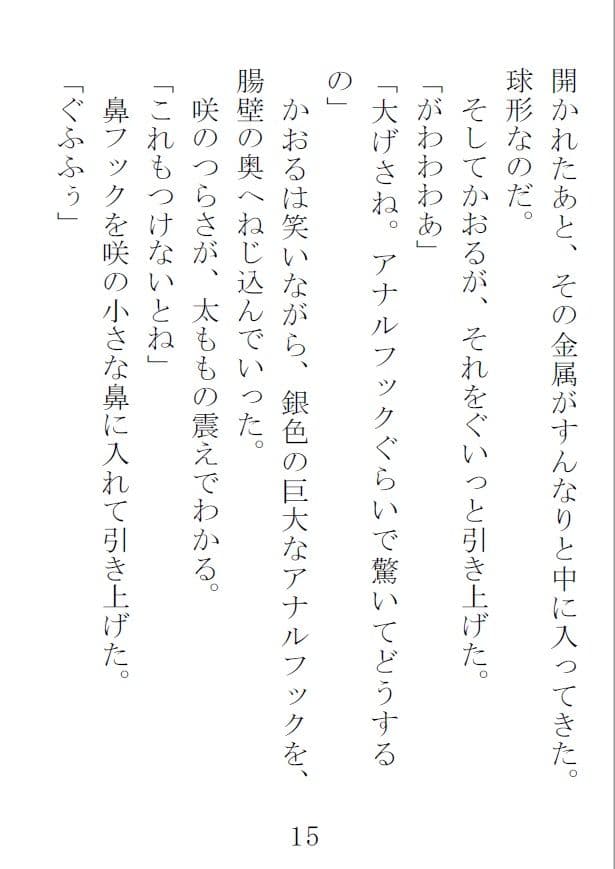 開かれたあと、その金属がすんなりと中に入ってきた。
球形なのだ。
そしてかおるが、それをぐいっと引き上げた。
「がわわわあ」
「大げさね。アナルフックぐらいで驚いてどうする
の」
かおるは笑いながら、銀色の巨大なアナルフックを、
腸壁の奥へねじ込んでいった。
咲のつらさが、太ももの震えでわかる。
「これもつけないとね」
鼻フックを咲の小さな鼻に入れて引き上げた。
「ぐふふぅ」
15